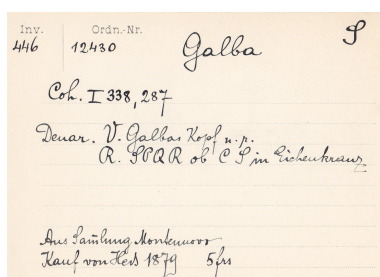 Inv. Ordn.-Nr.
446 12430 Galba S
Coh. I 338, 287
Denar. V. Galbas Kopf n. r.
R. SPQR ob C S in Eichenkranz
Aus Samlung Montenuovo
Kauf von Heß 1879 5 frs